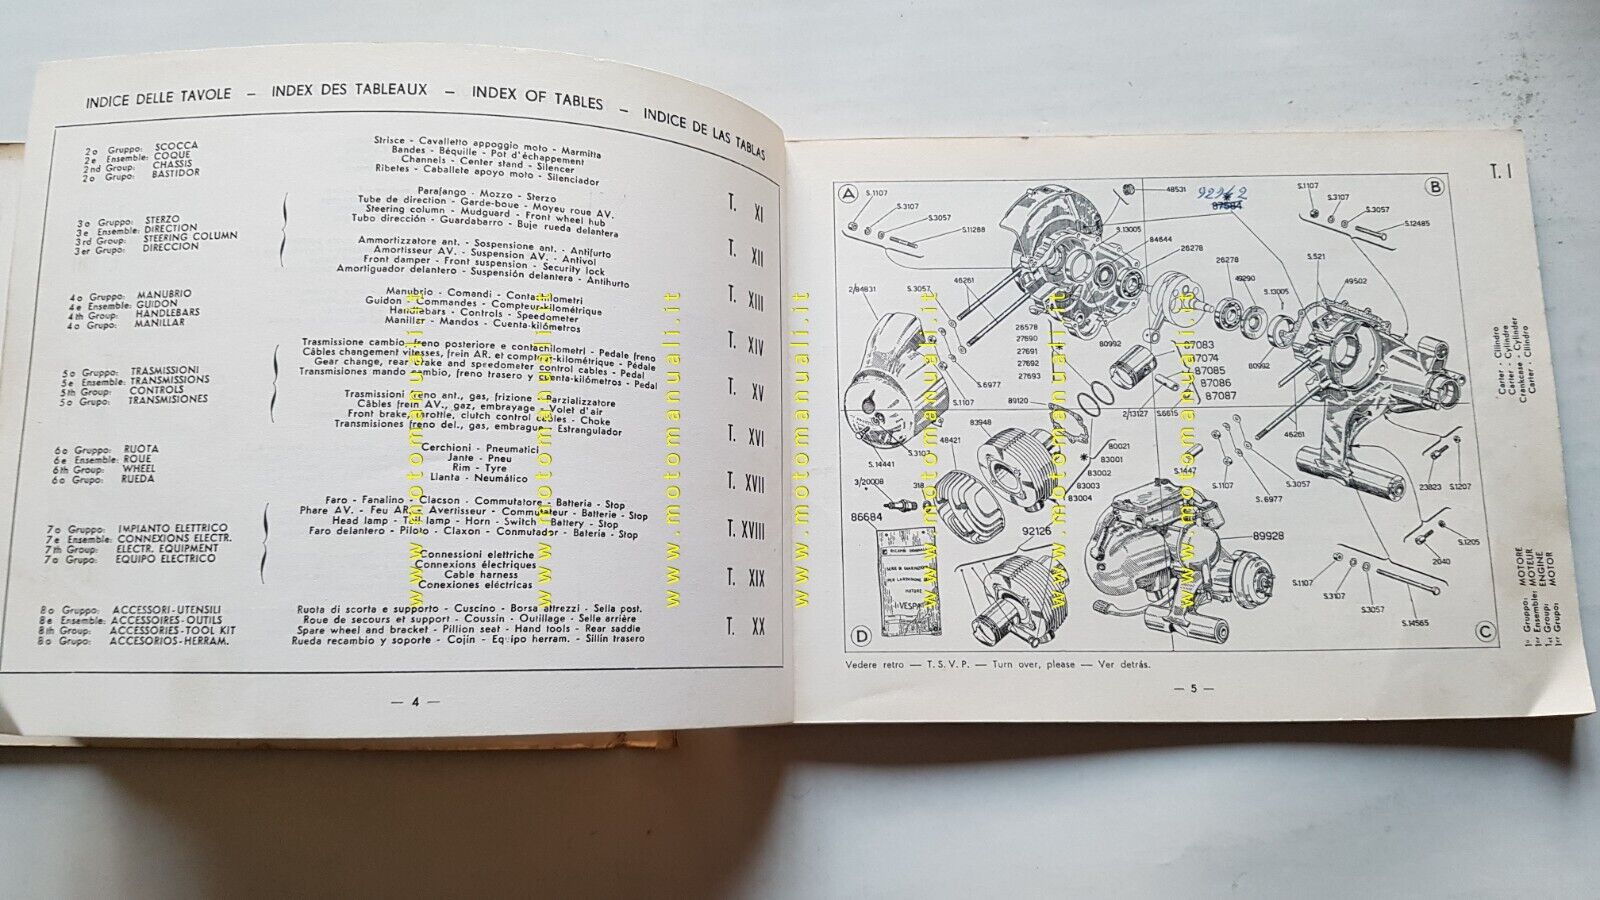 INDICE DELLE TAVOLE — INDEX DES TABLEAUX — INDEX OF TABLES — INDICE DE LAS TABLAS
2o Gruppo: SCOCCA
2e Ensemble: COQUE
2nd Group: CHASSIS
2o Grupo: BASTIDOR
Strisce - Cavalletto appoggio moto - Marmitta
Bandes - Béquille - Pot d'échappement
Channels - Center stand - Silencer
Ribetes - Caballete apoyo moto - Silenciador
T. XI
3o Gruppo: STERZO
3e Ensemble: DIRECTION
3rd Group: STEERING COLUMN
3er Grupo: DIRECCION
Parafango - Mozzo - Sterzo
Tube de direction - Garde-boue - Moyeu roue AV.
Steering column - Mudguard - Front wheel hub
Tubo dirección - Guardabarro - Buje rueda delantera
T. XII
Ammortizzatore ant. - Sospensione ant. - Antifurto
Amortisseur AV. - Suspension AV. - Antivol
Front damper - Front suspension - Security lock
Amortiguador delantero - Suspensión delantera - Antihurto
T. XIII
4o Gruppo: MANUBRIO
4e Ensemble: GUIDON
4th Group: HANDLEBARS
4o Grupo: MANILLAR
Manubrio - Comandi - Contachilometri
Guidon - Commandes - Compteur-kilométrique
Handlebars - Controls - Speedometer
Manillar - Mandos - Cuenta-kilómetros
T. XIV
5o Gruppo: TRASMISSIONI
5e Ensemble: TRANSMISSIONS
5th Group: CONTROLS
5o Grupo: TRANSMISIONES
Trasmissione cambio, freno posteriore e contachilometri - Pedale freno
Câbles changement vitesses, frein AR. et compteur-kilométrique - Pédale
Gear change, rear brake and speedometer control cables - Pedal
Transmisiones mando cambio, freno trasero y cuenta-kilómetros - Pedal
T. XV
Trasmissioni freno ant., gas, frizione - Parzializzatore
Câbles frein AV., gaz, embrayage - Volet d'air
Front brake, throttle, clutch control cables - Choke
Transmisiones freno del., gas, embrague - Estrangulador
T. XVI
6o Gruppo: RUOTA
6e Ensemble: ROUE
6th Group: WHEEL
6o Grupo: RUEDA
Cerchioni - Pneumatici
Jante - Pneu
Rim - Tyre
Llanta - Neumático
T. XVII
7o Gruppo: IMPIANTO ELETTRICO
7e Ensemble: CONNEXIONS ELECTR.
7th Group: ELECTR. EQUIPMENT
7o Grupo: EQUIPO ELECTRICO
Faro - Fanalino - Clacson - Commutatore - Batteria - Stop
Phare AV. - Feu AR. - Avertisseur - Commutateur - Batterie - Stop
Head lamp - Tail lamp - Horn - Switch - Battery - Stop
Faro delantero - Piloto - Claxon - Conmutador - Batería - Stop
T. XVIII
Connessioni elettriche
Connexions électriques
Cable harness
Conexiones eléctricas
T. XIX
8o Gruppo: ACCESSORI-UTENSILI
8e Ensemble: ACCESSOIRES-OUTILS
8th Group: ACCESSORIES-TOOL KIT
8o Grupo: ACCESORIOS-HERRAM.
Ruota di scorta e supporto - Cuscino - Borsa attrezzi - Sella post.
Roue de secours et support - Coussin - Outillage - Selle arrière
Spare wheel and bracket - Pillion seat - Hand tools - Rear saddle
Rueda recambio y soporte - Cojín - Equipo herram. - Sillín trasero
T. XX
— 4 —
T. I
A
B
S.1107
S.3107
S.3057
S.11288
48531
87584
S.13005
84644
26278
26278
49290
S.13005
S.521
49502
S.1107
S.3107
S.3057
S.12485
2/84831
S.3057
46261
26578
27690
27691
27692
27693
80992
87083
87074
87085
87086
87087
80992
S.6977
S.1107
89120
2/13127
S.6615
46261
83948
48421
S.3107
S.14441
80021
83001
83002
83003
83004
3/20008
318
S.1447
S.1107
S.6977
S.3057
23823
S.1207
86684
92126
89928
S.1205
2040
S.1107
S.3107
S.3057
S.14585
VESPA
D
C
Vedere retro — T. S. V. P. — Turn over, please — Ver detrás.
— 5 —
Carter - Cilindro
Carter - Cylindre
Crankcase - Cylinder
Carter - Cilindro
1o Gruppo: MOTORE
1er Ensemble: MOTEUR
1st Group: ENGINE
1er Grupo: MOTOR
www.motomanuali.it
www.motomanuali.it
www.motomanuali.it
www.motomanuali.it
www.motomanuali.it
www.motomanuali.it